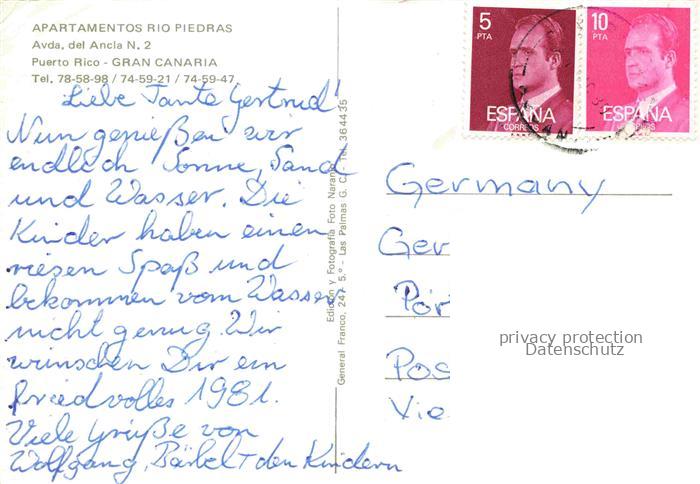 APARTAMENTOS RIO PIEDRAS
Avda. del Ancla N. 2
Puerto Rico - GRAN CANARIA
Tel. 78-58-98 / 74-59-21 / 74-59-47
Liebe Tante Gertrud!
Nun genießen wir
endlich Sonne, Sand
und Wasser. Die
Kinder haben einen
riesen Spaß und
bekommen vom Wasser
nicht genug. Wir
wünschen Dir ein
friedvolles 1981.
Viele Grüße von
Wolfgang, Bärbel + den Kindern
Edición y Fotografía Foto Naranjo
General Franco, 24 - 5.º - Las Palmas G. C. - Tel. 364435
5
PTA
ESPAÑA
CORREOS
10
PTA
ESPAÑA
Germany
Ger
Pos
privacy protection
Datenschutz
Vie